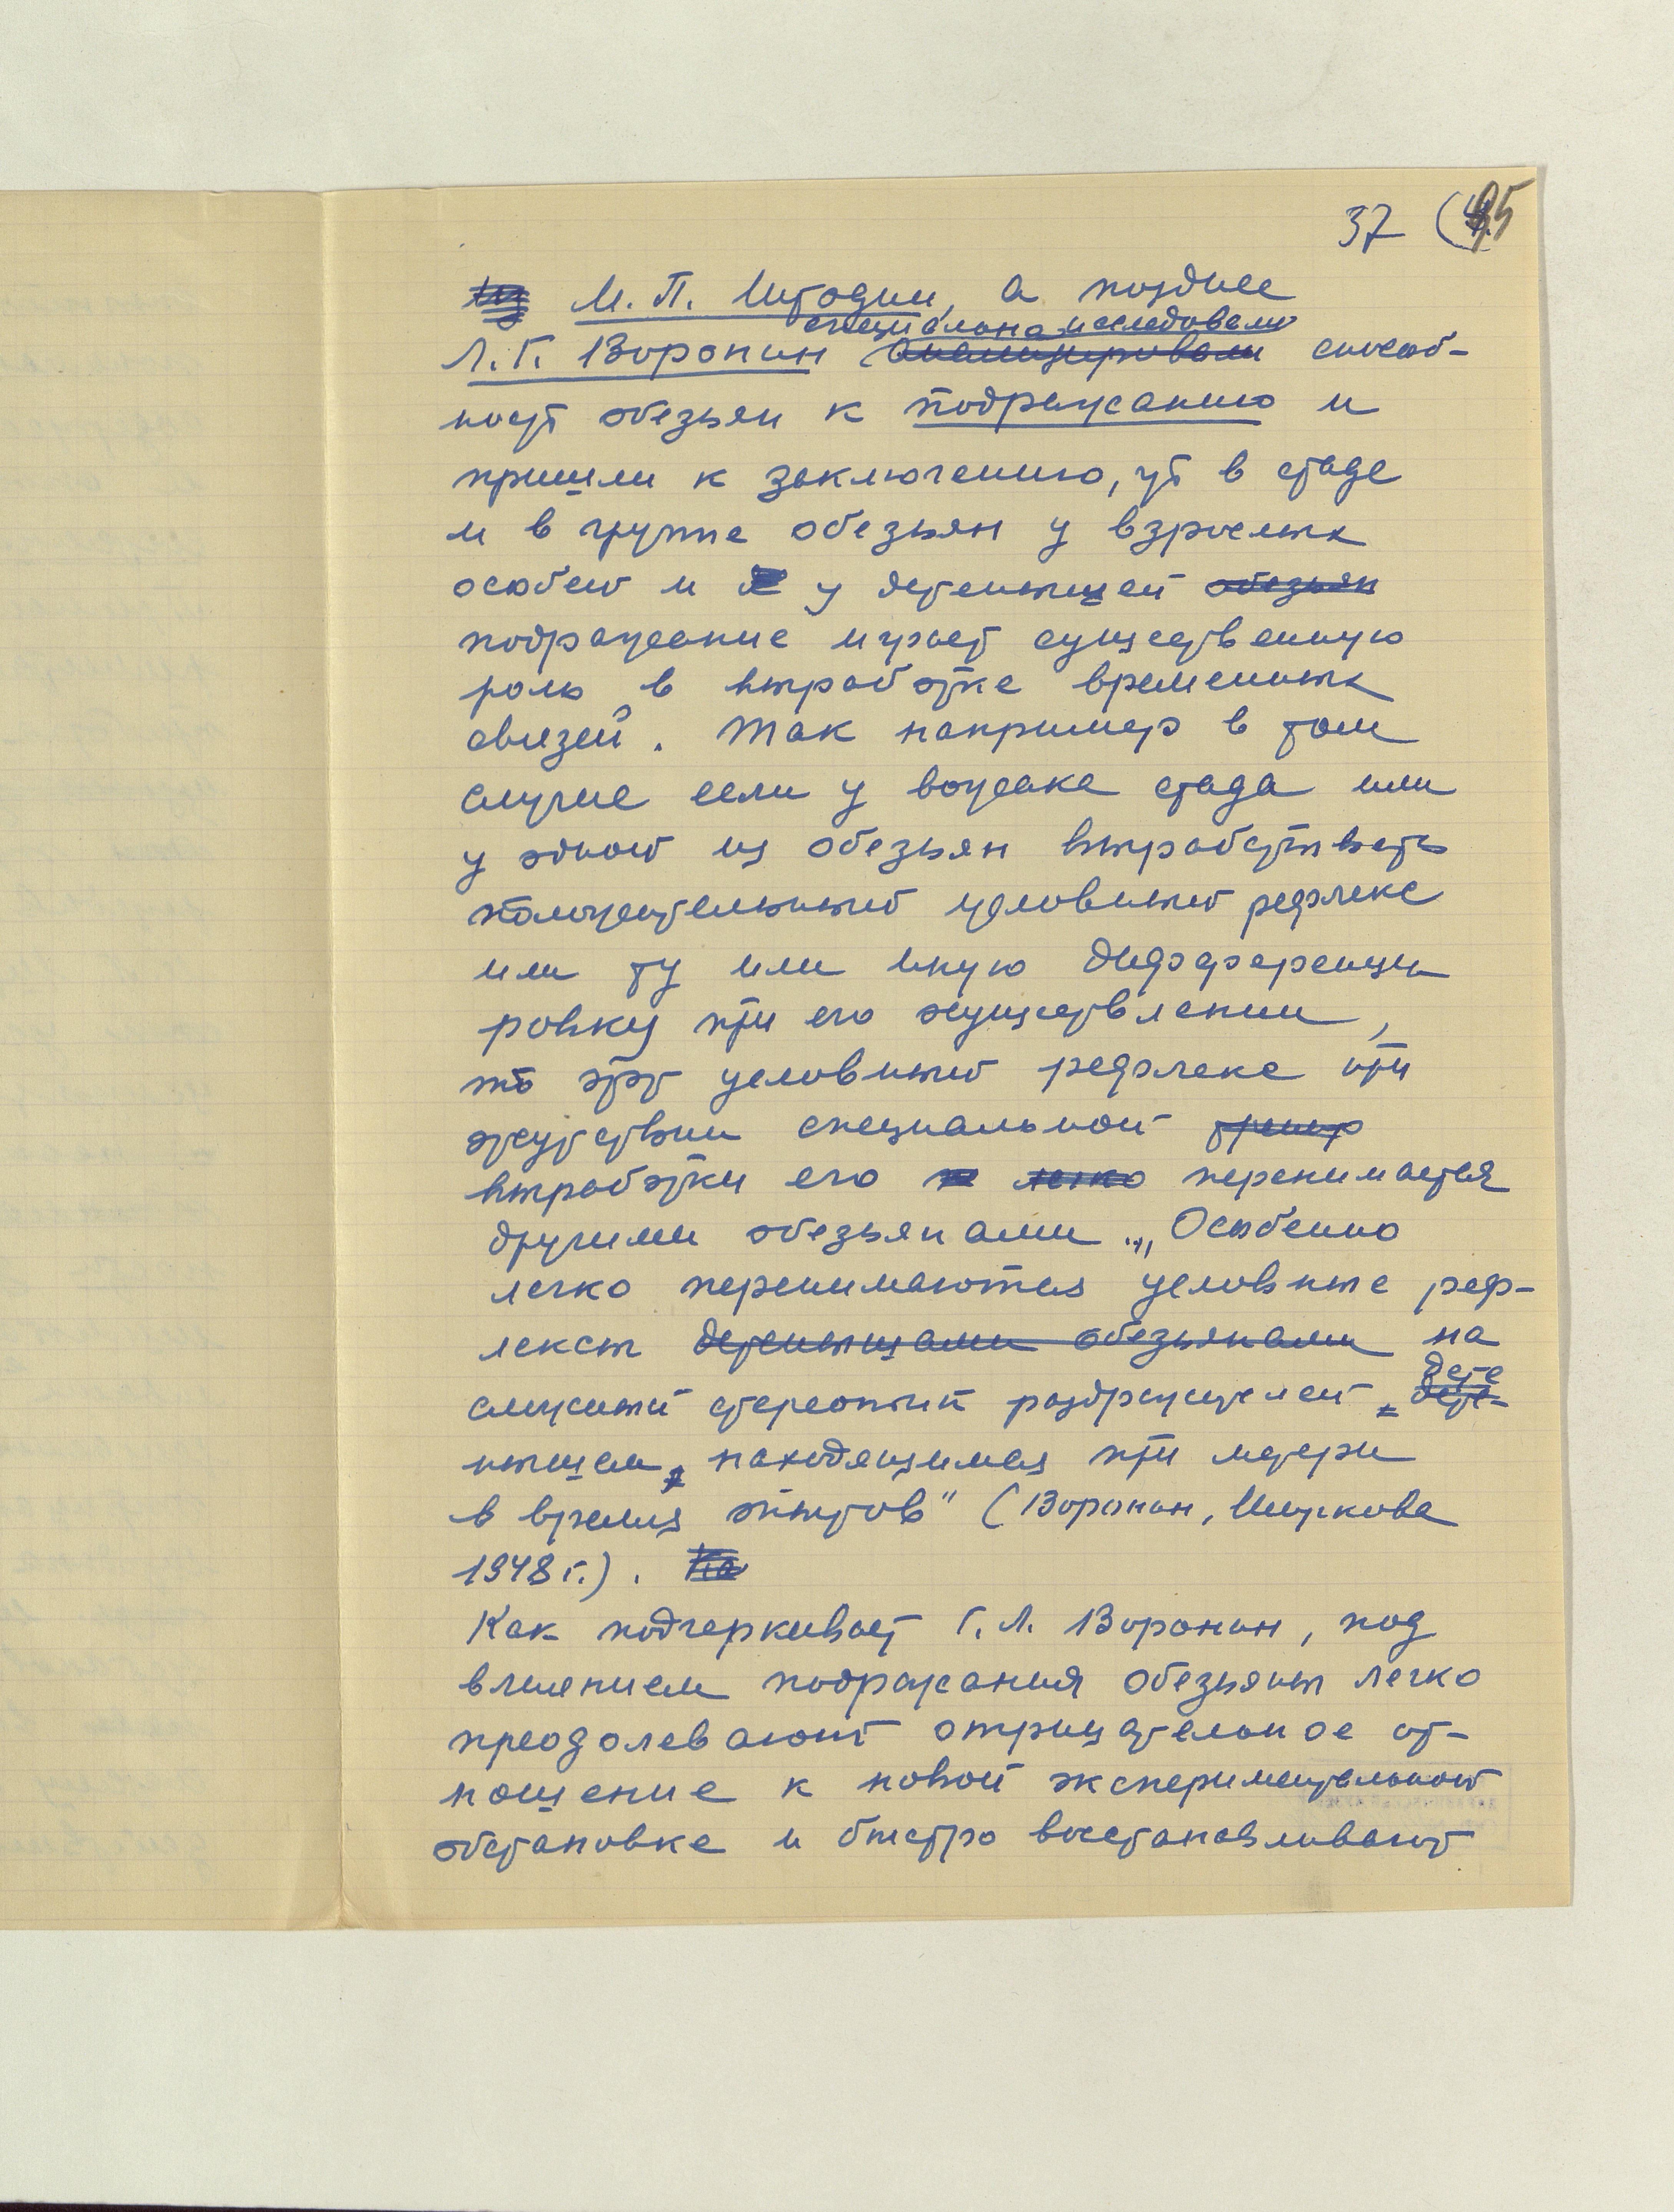 37 (45
М. П. Штодин, а позднее
специально исследовали
Л. Г. Воронин анализировали способ-
ность обезьян к подражанию и
пришли к заключению, что в стаде
и в группе обезьян у взрослых
особей и у детенышей обезьян
подражание играет существенную
роль в выработке временных
связей. Так например в том
случае если у вожака стада или
у одной из обезьян выработывать
положительный условный рефлекс
или ту или иную дифференци
ровку при его осуществлении,
то этот условный рефлекс при
отсутствии специальной тренир
выработки его легко перенимается
другими обезьянами „Особенно
легко перенимаются условные реф-
лексы детенышами обезьянами на
дете
слуховой стереотип раздражителей дете-
нышем, находящимся при матери
в время опытов" (Воронин, Ширкова
1948 г.). Ка
Как подчеркивает Г. Л. Воронин, под
влиянием подражания обезьяны легко
преодолевают отрицательное от-
ношение к новой экспериментальной
обстановке и быстро восстанавливают